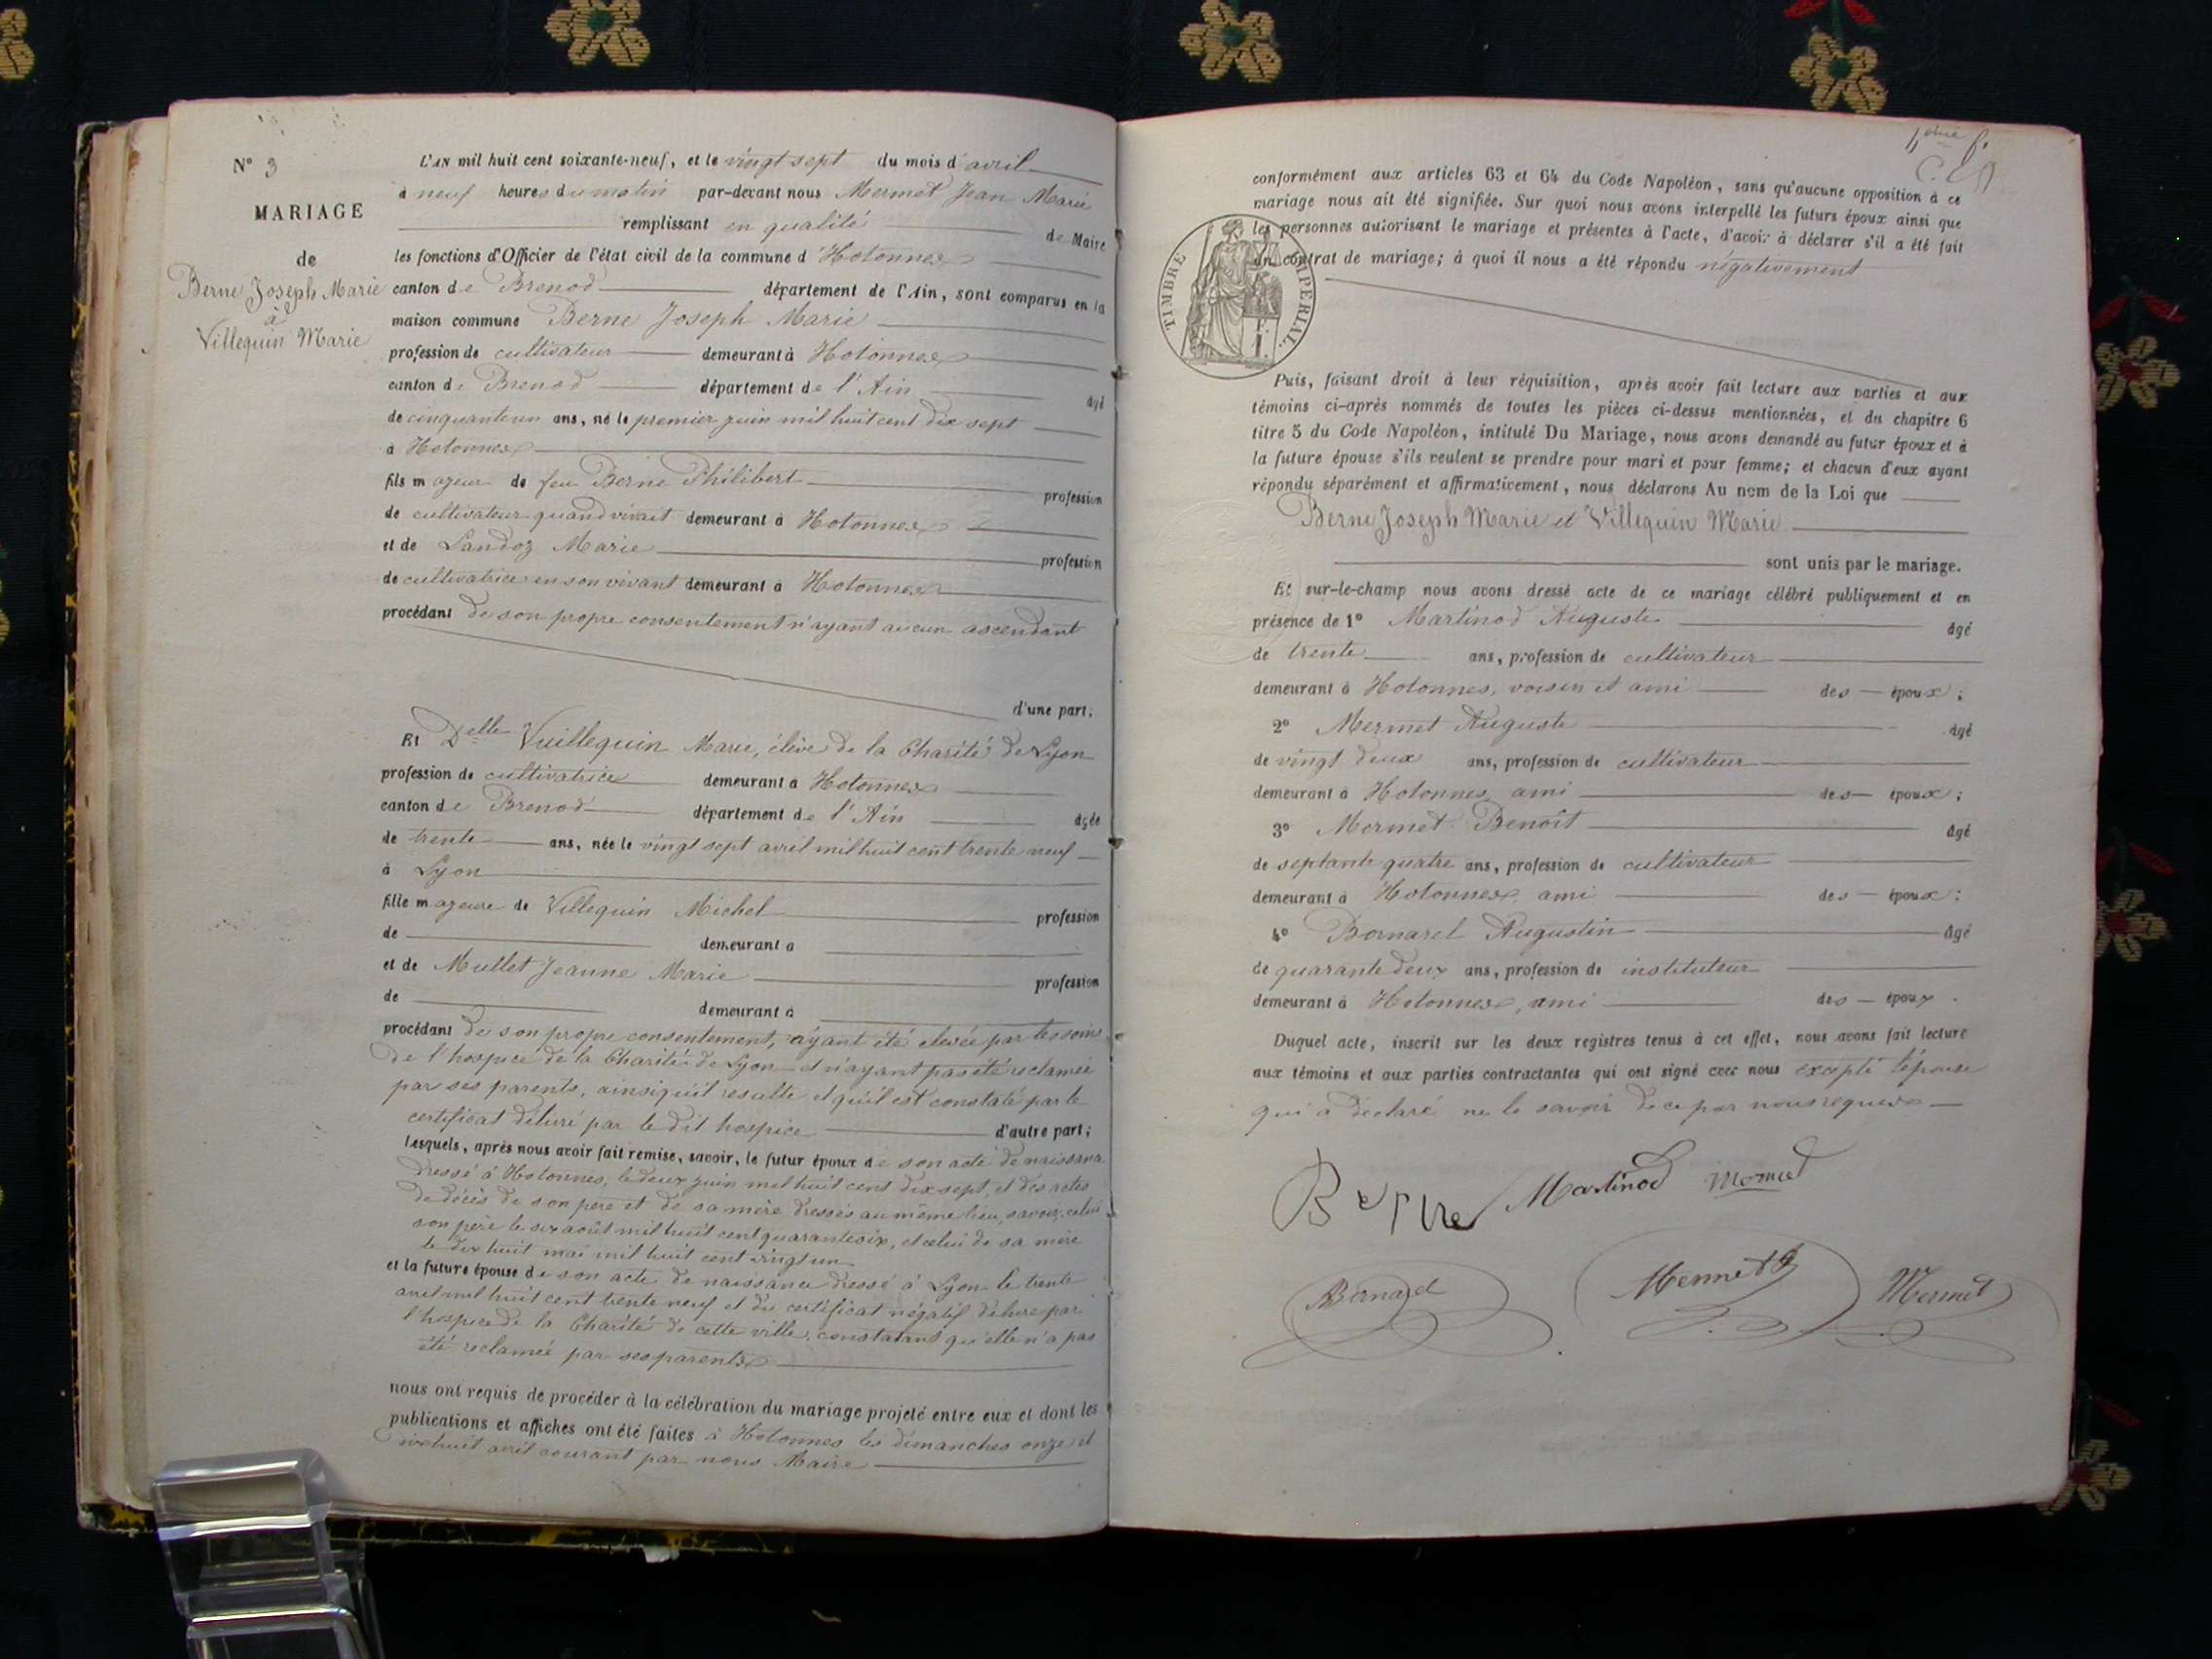 N° 3
MARIAGE
de
Berne Joseph Marie
à
Villequin Marie
L'AN mil huit cent soixante-neuf, et le vingt sept du mois d'avril
à neuf heures du matin par-devant nous Mermet Jean Marie
remplissant en qualité de Maire
les fonctions d'Officier de l'état civil de la commune d'Hotonnes
canton de Brenod département de l'Ain, sont comparus en la
maison commune Berne Joseph Marie
profession de cultivateur demeurant à Hotonnes
canton de Brenod département de l'Ain âgé
de cinquante un ans, né le premier juin mil huit cent dix sept
à Hotonnes
fils majeur de feu Berne Philibert profession
de cultivateur quand vivait demeurant à Hotonnes
et de Landoz Marie profession
de cultivatrice en son vivant demeurant à Hotonnes
procédant de son propre consentement n'ayant aucun ascendant
d'une part;
Et Delle Vuillequin Marie, élève de la Charité de Lyon
profession de cultivatrice demeurant à Hotonnes
canton de Brenod département de l'Ain âgée
de trente ans, née le vingt sept avril mil huit cent trente neuf
à Lyon
fille majeure de Villequin Michel profession
de demeurant à
et de Mullet Jeanne Marie profession
de demeurant à
procédant de son propre consentement, ayant été elevée par les soins
de l'hospice de la Charité de Lyon et n'ayant pas été reclamée
par ses parents, ainsi qu'il resulte et qu'il est constaté par le
certificat déluré par le dit hospice d'autre part;
lesquels, après nous avoir fait remise, savoir, le futur époux de son acte de naissance
dressé à Hotonnes, le deux juin mil huit cent dix sept, et des actes
de décès de son père et de sa mère dressés au même lieu, savoir, celui
son père le six août mil huit cent quarante six, et celui de sa mère
le dix huit mai mil huit cent vingt un
et la future épouse de son acte de naissance dressé à Lyon le trente
avril mil huit cent trente neuf et du certificat négatif délivré par
l'hospice de la Charité de cette ville, constatant qu'elle n'a pas
été reclamée par ses parents
nous ont requis de procéder à la célébration du mariage projeté entre eux et dont les
publications et affiches ont été faites à Hotonnes les dimanches onze et
dix huit avril courant par nous Maire
conformément aux articles 63 et 64 du Code Napoléon, sans qu'aucune opposition à ce
mariage nous ait été signifiée. Sur quoi nous avons interpellé les futurs époux ainsi que
les personnes autorisant le mariage et présentes à l'acte, d'avoir à déclarer s'il a été fait
un contrat de mariage; à quoi il nous a été répondu négativement
TIMBRE IMPERIAL.
Puis, faisant droit à leur réquisition, après avoir fait lecture aux parties et aux
témoins ci-après nommés de toutes les pièces ci-dessus mentionnées, et du chapitre 6
titre 5 du Code Napoléon, intitulé Du Mariage, nous avons demandé au futur époux et à
la future épouse s'ils veulent se prendre pour mari et pour femme; et chacun d'eux ayant
répondu séparément et affirmativement, nous déclarons Au nom de la Loi que
Berne Joseph Marie et Villequin Marie
sont unis par le mariage.
Et sur-le-champ nous avons dressé acte de ce mariage célébré publiquement et en
présence de 1° Martinod Auguste âgé
de trente ans, profession de cultivateur
demeurant à Hotonnes, voisin et ami des époux;
2° Mermet Auguste âgé
de vingt deux ans, profession de cultivateur
demeurant à Hotonnes, ami des époux;
3° Mermet Benoît âgé
de septante quatre ans, profession de cultivateur
demeurant à Hotonnes, ami des époux;
4° Bornarel Augustin âgé
de quarante deux ans, profession de instituteur
demeurant à Hotonnes, ami des époux.
Duquel acte, inscrit sur les deux registres tenus à cet effet, nous avons fait lecture
aux témoins et aux parties contractantes qui ont signé avec nous excepté l'épouse
qui a déclaré ne le savoir de ce par nous requis
Berne Martinod Mermet
Mermet